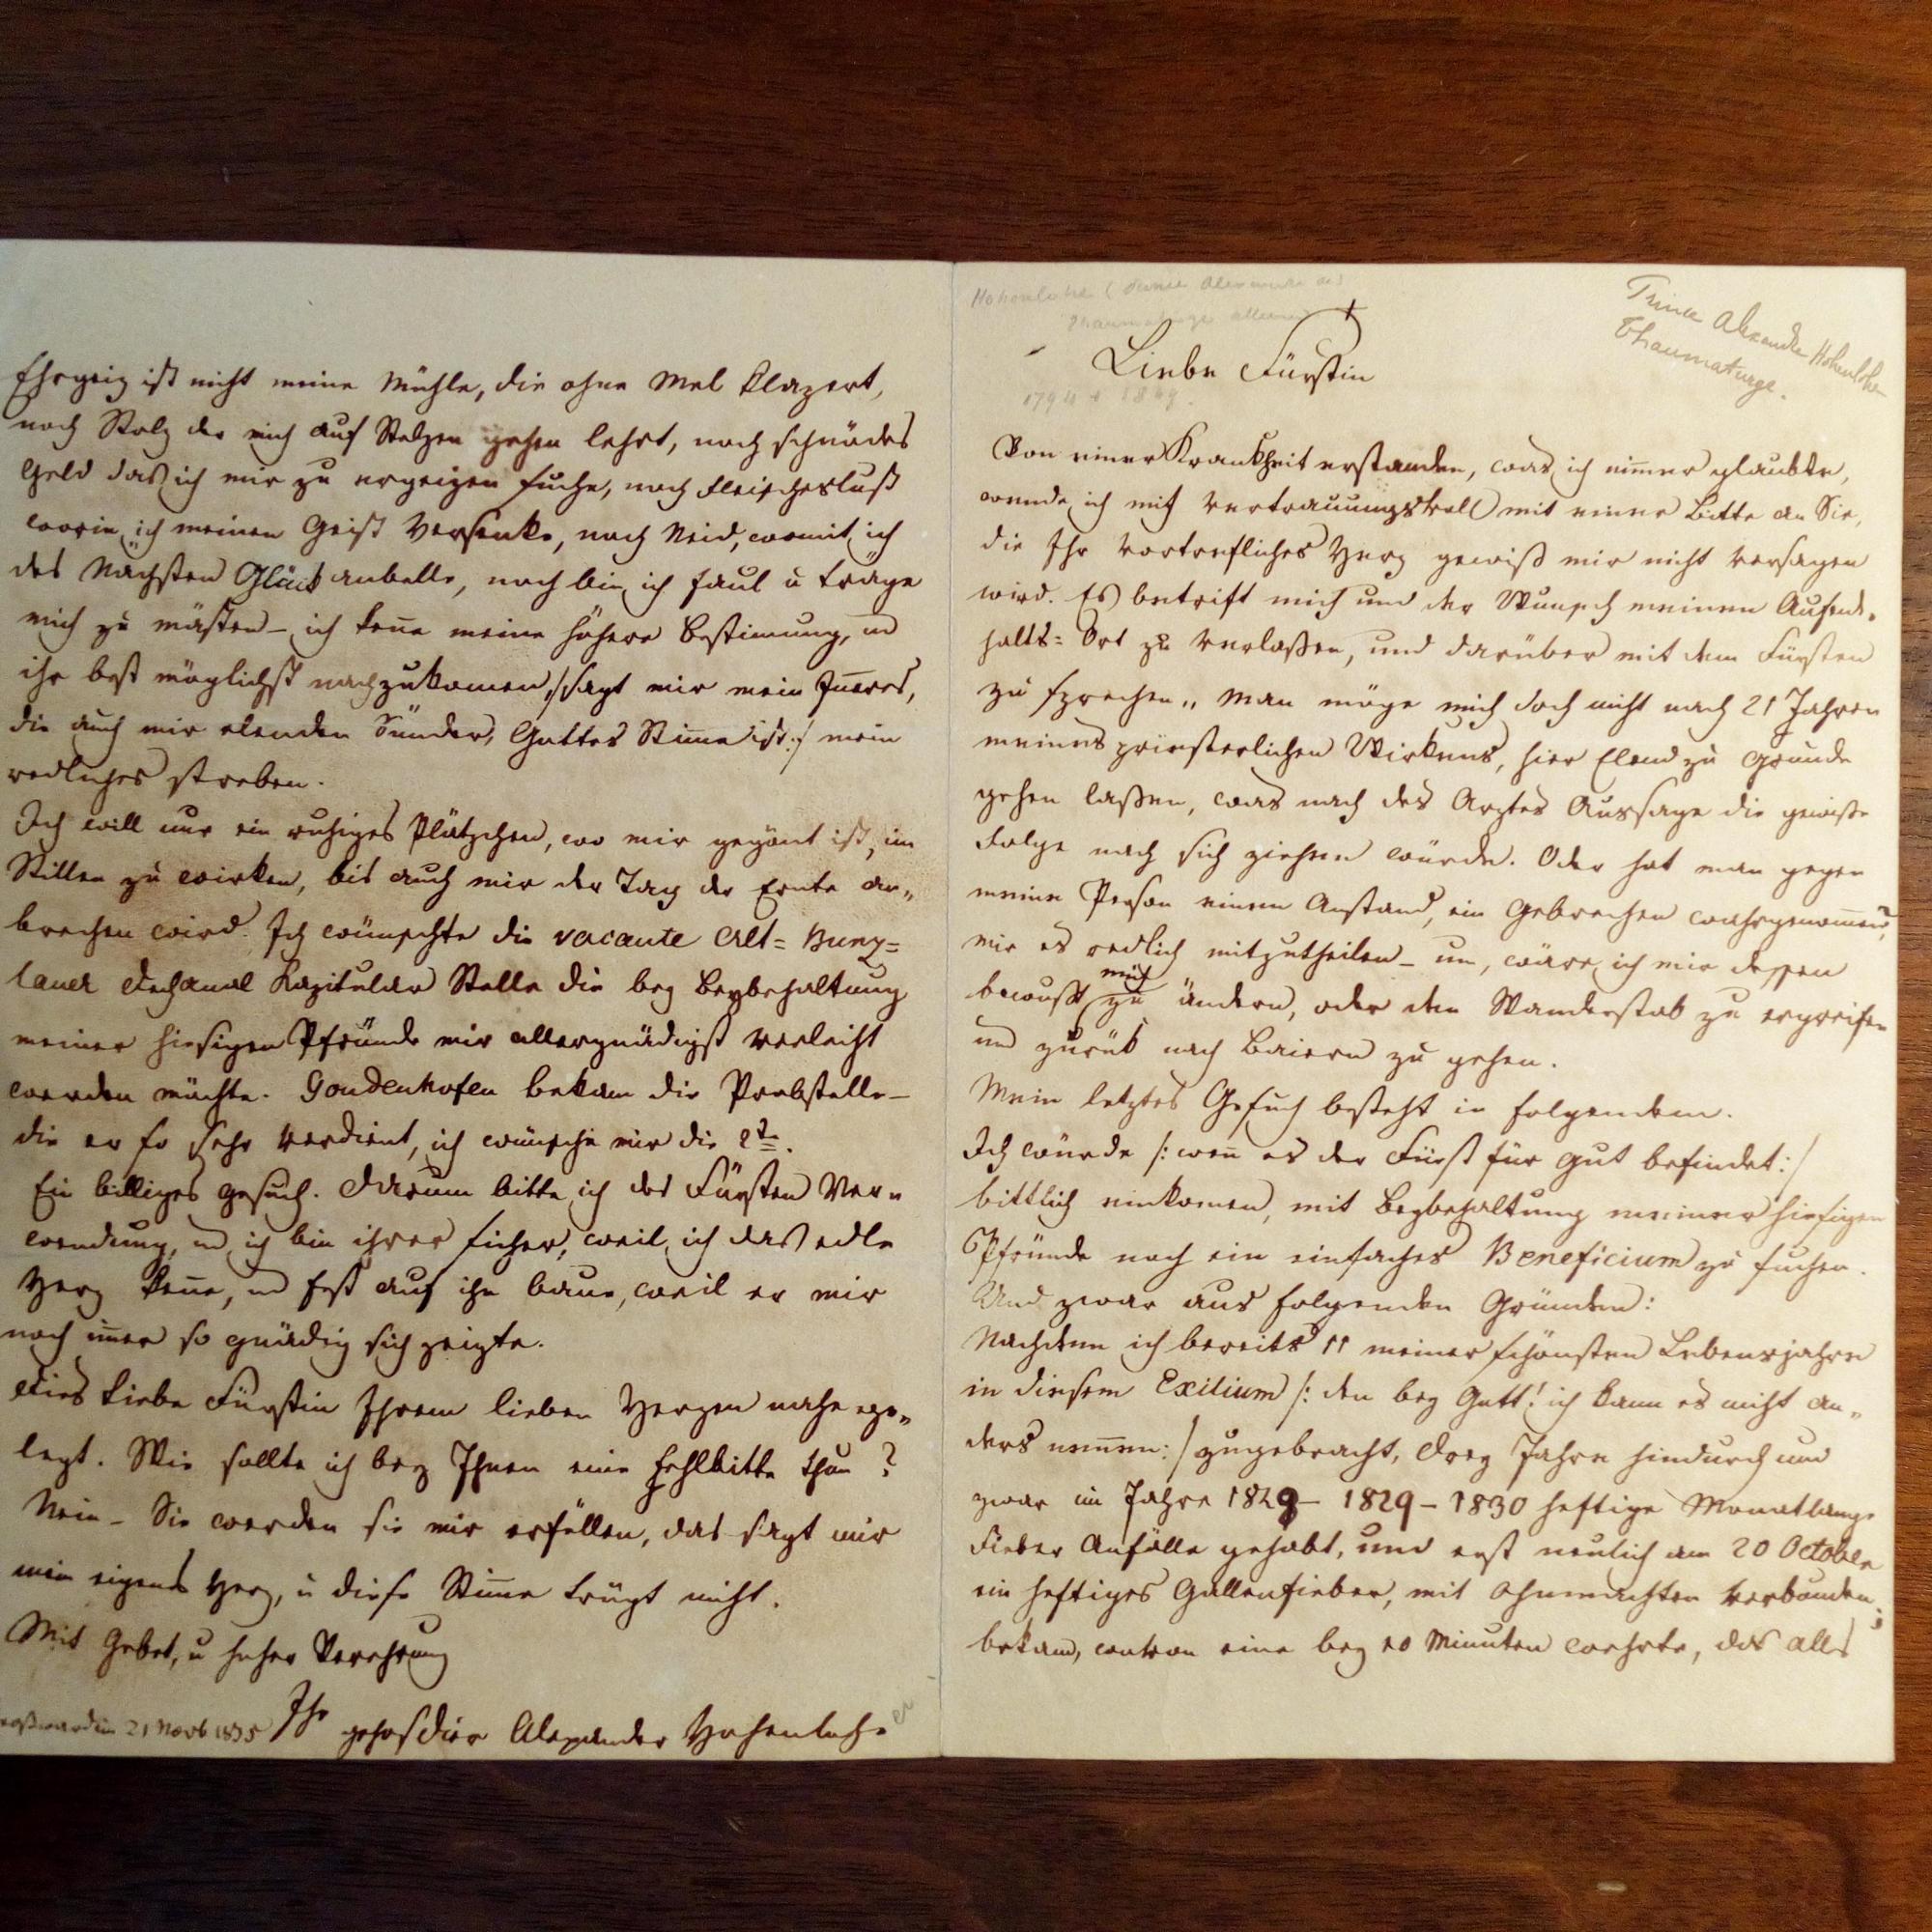 Hohenlohe (
Prince Alexandre Hohenlohe
Thaumaturge.
†
Liebe Fürstin
1794 + 1849.
Von einer Krankheit erstanden, was ich nimer glaubte,
wende ich mich vertrauungsvoll mit einer Bitte an Sie,
die Ihr vortrefliches Herz gewiß mir nicht versagen
wird. Es betrift mich und der Wunsch meinen Aufent-
halts=Ort zu verlaßen, und darüber mit dem Fürsten
zu sprechen „ man möge mich doch nicht nach 21 Jahren
meines priesterlichen Wirkens, hier Elend zu Grunde
gehen laßen, was nach des Arztes Aussage die gewisse
Folge nach sich ziehen würde. Oder hat man gegen
meine Person einen Anstand, ein Gebrechen wahrgenomen,
mir es redlich mitzutheilen – um, wäre ich mir dessen
bewußt mich zu ändern, oder den Wanderstab zu ergreifen
und zurük nach Baiern zu gehen.
Mein letztes Gesuch besteht in folgendem.
Ich würde /: wen es der Fürst für gut befindet :/
bittlich einkomen, mit Beybehaltung meiner hiesigen
Pfründe noch ein einfaches Beneficium zu suchen.
Und zwar aus folgenden Gründen:
Nachdem ich bereits 11 meiner schönsten Lebensjahre
in diesem Exilium /: den bey Gott! ich kann es nicht an„
ders nennen :/ zugebracht, drey Jahre hindurch und
zwar im Jahre 1828 – 1829 – 1830 heftige Monatlange
Fieber Anfälle gehabt, und erst neulich am 20 October
ein heftiges Gallenfieber, mit Ohnmachten verbunden
bekam, wovon eine bey 10 Minuten wehrte, das alles
Ehrgeiz ist nicht meine Mühle, die ohne Mel klapert,
noch Stolz der mich auf Stelzen gehen lehrt, noch schnödes
Geld das ich mir zu ergeizen suche, noch Fleischeslust
worin ich meinen Geist versenke, noch Neid, womit ich
des Nächsten Glück anbelle, noch bin ich faul u träge
mich zu mästen – ich kene meine höhere Bestimung, und
ihr best möglichst nachzukomen, /: sagt mir mein Ineres,
die auch mir elenden Sünder, Gottes Stime ist :/ mein
redliches streben.
Ich will nur ein ruhiges Plätzchen, wo mir gegönt ist, im
Stillen zu wirken, bis auch mir der Tag der Ernte an„
brechen wird. Ich wünschte die vacante Alt=Bunz=
lauer Kapitular Stelle die bey Beybehaltung
meiner hiesigen Pfründe mir allergnädigst verleiht
werden möchte. Coudenhofen bekam die Probstelle –
die er so sehr verdient, ich wünsche mir die 2te.
Ein billiges Gesuch. Darum bitte ich des Fürsten Ver„
wendung, und ich bin ihrer sicher, weil ich das edle
Herz kene, und fest auf ihn baue, weil er mir
noch imer so gnädig sich zeigte.
Dies Liebe Fürstin Ihrem lieben Herzen nahe ge„
legt. Wie sollte ich bey Ihnen eine Fehlbitte thun?
Nein – Sie werden sie mir erfüllen, das sagt mir
mein eigenes Herz, u diese Stime trügt nicht.
Mit Gebet, u hoher Verehrung
21 Novb 1835 Ihr
Alexander Hohenlohe